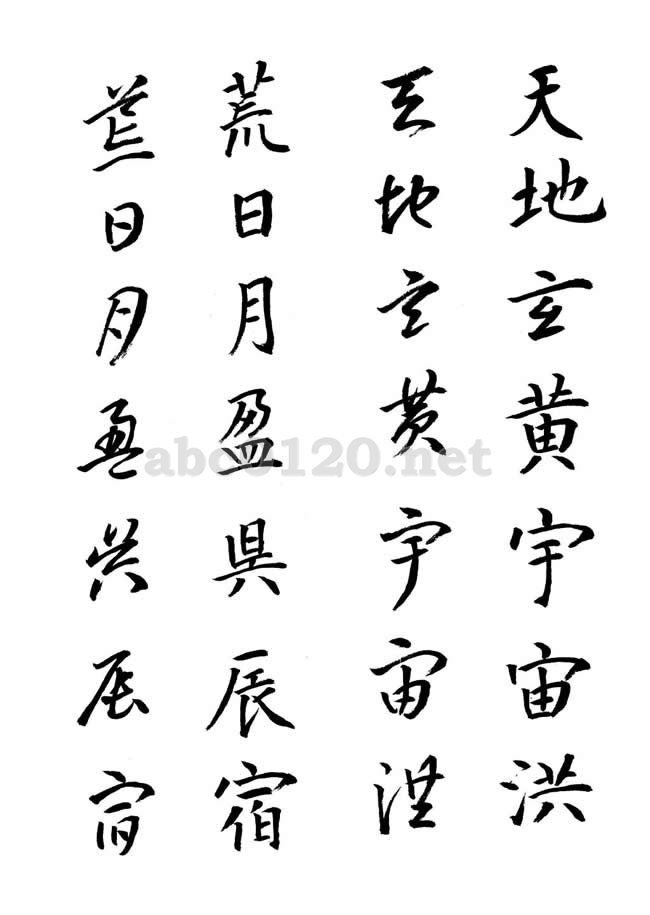 天地玄黄宇宙洪
天地玄黄宇宙洪
荒日月盈昃辰宿
荒日月盈昃辰宿
abc0120.net